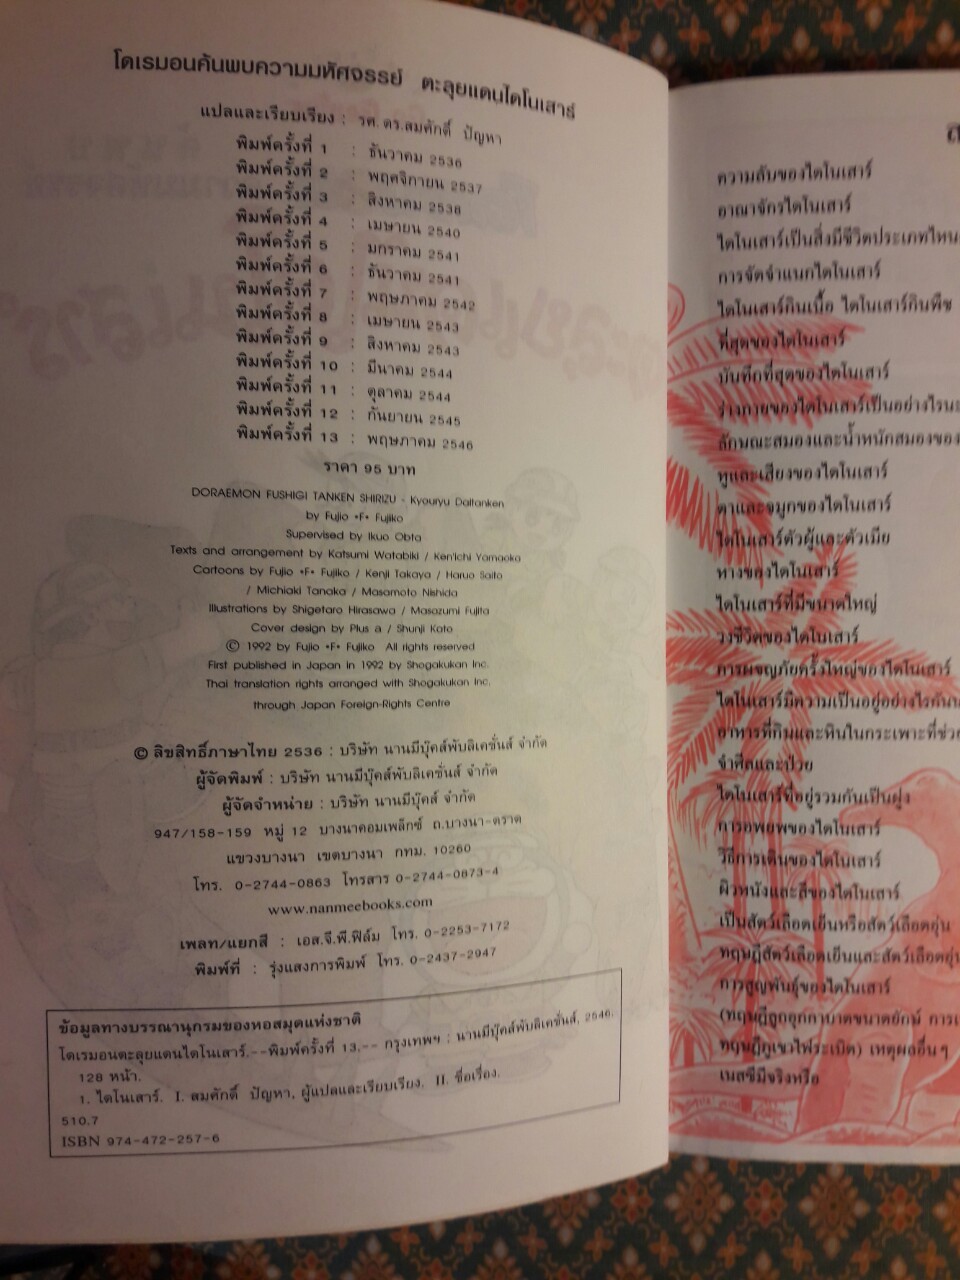 โดเรมอนค้นพบความมหัศจรรย์ ตะลุยแดนไดโนเสาร์
แปลและเรียบเรียง : รศ.ดร.สมศักดิ์ ปัญหา
พิมพ์ครั้งที่ 1 : ธันวาคม 2536
พิมพ์ครั้งที่ 2 : พฤศจิกายน 2537
พิมพ์ครั้งที่ 3 : สิงหาคม 2538
พิมพ์ครั้งที่ 4 : เมษายน 2540
พิมพ์ครั้งที่ 5 : มกราคม 2541
พิมพ์ครั้งที่ 6 : ธันวาคม 2541
พิมพ์ครั้งที่ 7 : พฤษภาคม 2542
พิมพ์ครั้งที่ 8 : เมษายน 2543
พิมพ์ครั้งที่ 9 : สิงหาคม 2543
พิมพ์ครั้งที่ 10 : มีนาคม 2544
พิมพ์ครั้งที่ 11 : ตุลาคม 2544
พิมพ์ครั้งที่ 12 : กันยายน 2545
พิมพ์ครั้งที่ 13 : พฤษภาคม 2546
ราคา 95 บาท
DORAEMON FUSHIGI TANKEN SHIRIZU - Kyouryu Daitanken
by Fujio •F• Fujiko
Supervised by Ikuo Obta
Texts and arrangement by Katsumi Watabiki / Ken'ichi Yamaoka
Cartoons by Fujio •F• Fujiko / Kenji Takaya / Haruo Saito
/ Michiaki Tanaka / Masamoto Nishida
Illustrations by Shigetaro Hirasawa / Masazumi Fujita
Cover design by Plus a / Shunji Kato
© 1992 by Fujio •F• Fujiko All rights reserved
First published in Japan in 1992 by Shogakukan Inc.
Thai translation rights arranged with Shogakukan Inc.
through Japan Foreign-Rights Centre
© ลิขสิทธิ์ภาษาไทย 2536 : บริษัท นานมีบุ๊คส์พับลิเคชั่นส์ จำกัด
ผู้จัดพิมพ์ : บริษัท นานมีบุ๊คส์พับลิเคชั่นส์ จำกัด
ผู้จัดจำหน่าย : บริษัท นานมีบุ๊คส์ จำกัด
947/158-159 หมู่ 12 บางนาคอมเพล็กซ์ ถ.บางนา-ตราด
แขวงบางนา เขตบางนา กทม. 10260
โทร. 0-2744-0863 โทรสาร 0-2744-0873-4
www.nanmeebooks.com
เพลท/แยกสี : เอส.จี.พี.ฟิล์ม โทร. 0-2253-7172
พิมพ์ที่ : รุ่งแสงการพิมพ์ โทร. 0-2437-2947
ข้อมูลทางบรรณานุกรมของหอสมุดแห่งชาติ
โดเรมอนตะลุยแดนไดโนเสาร์.--พิมพ์ครั้งที่ 13.-- กรุงเทพฯ : นานมีบุ๊คส์พับลิเคชั่นส์, 2546.
128 หน้า.
1. ไดโนเสาร์. I. สมศักดิ์ ปัญหา, ผู้แปลและเรียบเรียง. II. ชื่อเรื่อง.
510.7
ISBN 974-472-257-6
ความลับของไดโนเสาร์
อาณาจักรไดโนเสาร์
ไดโนเสาร์เป็นสิ่งมีชีวิตประเภทไหน
การจัดจำแนกไดโนเสาร์
ไดโนเสาร์กินเนื้อ ไดโนเสาร์กินพืช
ที่สุดของไดโนเสาร์
บันทึกที่สุดของไดโนเสาร์
ร่างกายของไดโนเสาร์เป็นอย่างไร
ลักษณะสมองและน้ำหนักสมองของ
หูและเสียงของไดโนเสาร์
ตาและจมูกของไดโนเสาร์
ไดโนเสาร์ตัวผู้และตัวเมีย
หางของไดโนเสาร์
ไดโนเสาร์ที่มีขนาดใหญ่
วงชีวิตของไดโนเสาร์
การผจญภัยครั้งใหญ่ของไดโนเสาร์
ไดโนเสาร์มีความเป็นอยู่อย่างไรกัน
อาหารที่กินและหินในกระเพาะที่ช่วย
จำศีลและป่วย
ไดโนเสาร์ที่อยู่รวมกันเป็นฝูง
การอพยพของไดโนเสาร์
วิธีการเดินของไดโนเสาร์
ผิวหนังและสีของไดโนเสาร์
เป็นสัตว์เลือดเย็นหรือสัตว์เลือดอุ่น
ทฤษฎีสัตว์เลือดเย็นและสัตว์เลือดอุ่น
การสูญพันธุ์ของไดโนเสาร์
(ทฤษฎีถูกอุกกาบาตขนาดยักษ์
ทฤษฎีภูเขาไฟระเบิด) เหตุผลอื่นๆ
เนสซีมีจริงหรือ